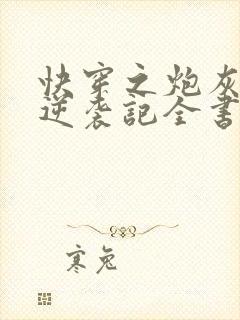 快穿之炮灰
逆袭記全書
寒兔